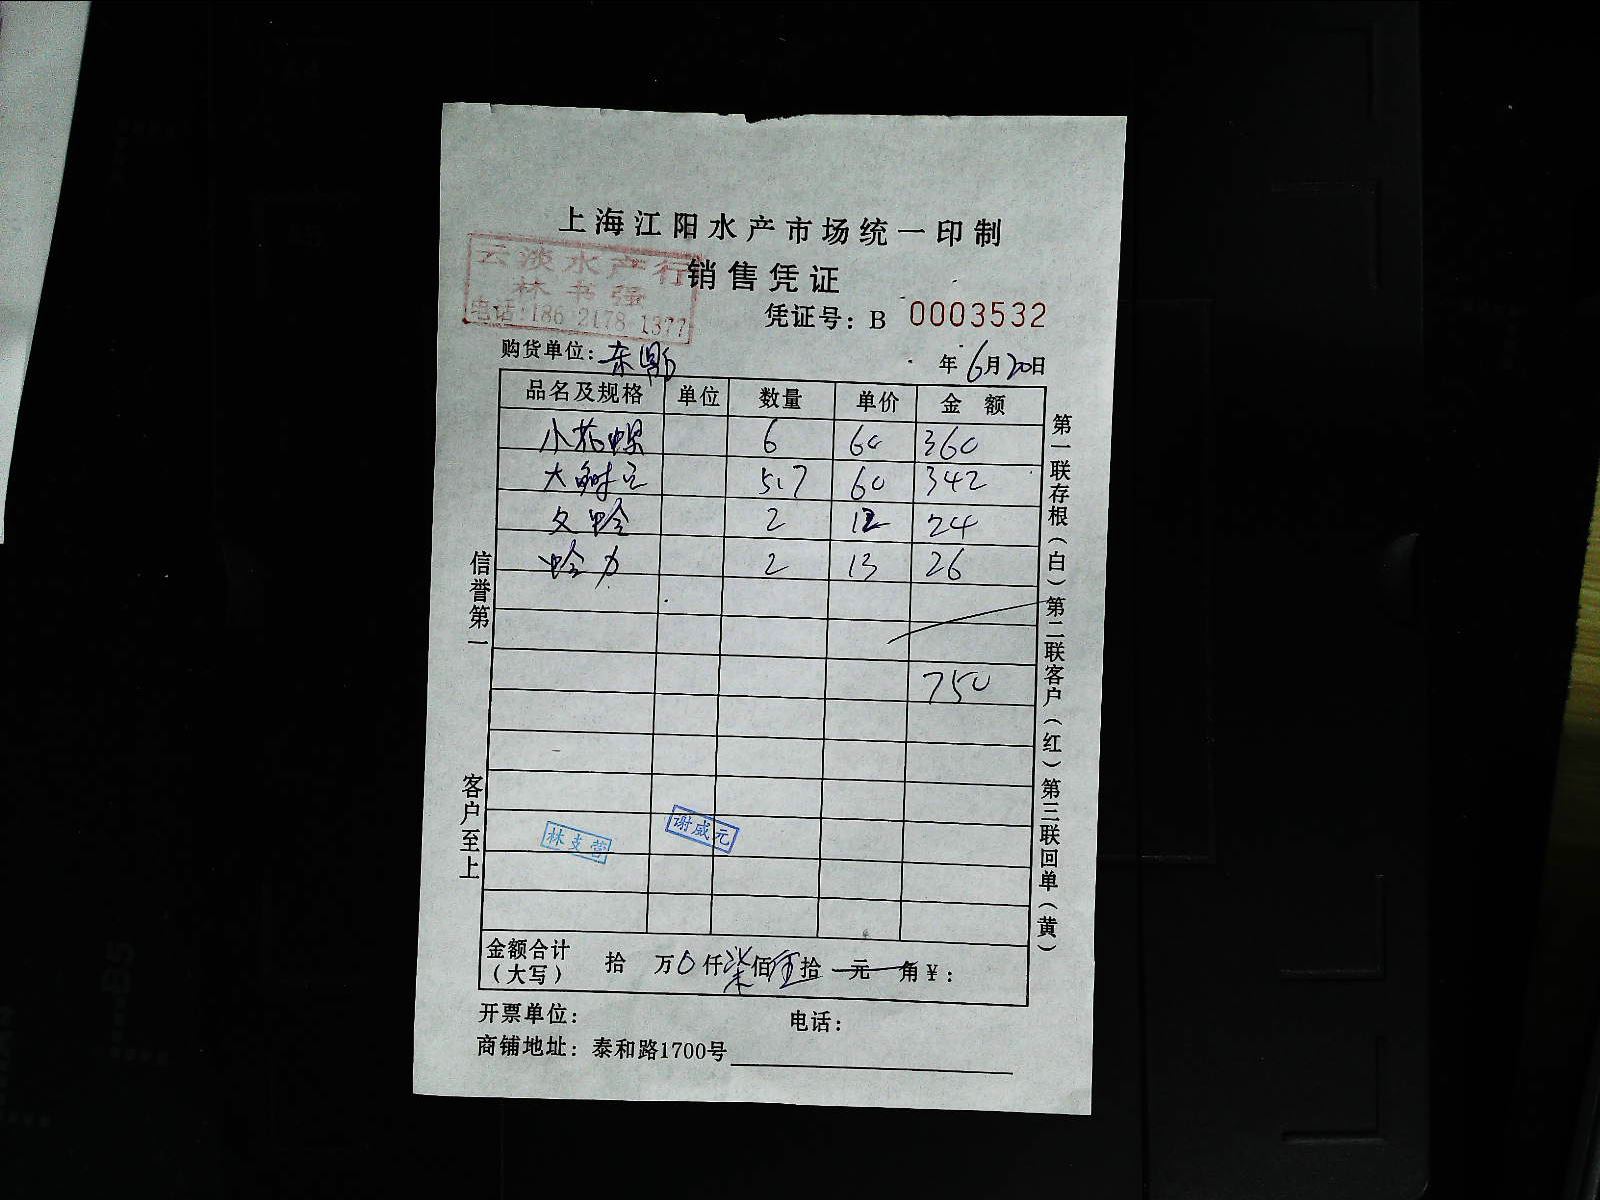 上海江阳水产市场统一印制
云淡水产行
林书强
电话:186 2178 1377
销售凭证
凭证号：B 0003532
购货单位：东
年6月20日
品名及规格 单位 数量 单价 金额
小花螺 6 60 360
大 5.7 60 342
文蛤 2 12 24
蛤 2 13 26
750
信誉第一
客户至上
第一联存根（白）第二联客户（红）第三联回单（黄）
林支营
谢成元
金额合计（大写） 拾 万0仟柒佰伍拾 元 角¥：
开票单位： 电话：
商铺地址：泰和路1700号